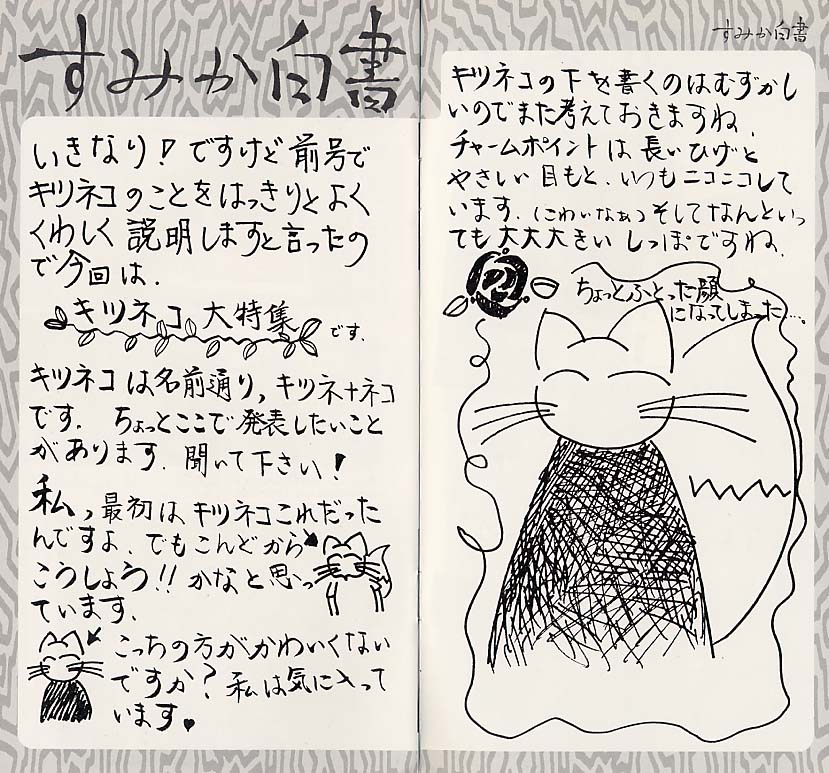 すみか白書
いきなり！ですけど前号で
キツネコのことをはっきりとよく
くわしく説明しますと言ったの
で今回は、
キツネコ大特集
です。
キツネコは名前通り，キツネ+ネコ
です。ちょっとここで発表したいこと
があります。聞いて下さい！
私っ最初はキツネコこれだった
んですよ。でもこんどから
こうしよう!!かなと思っ
ています。
こっちの方がかわいくない
ですか？私は気に入って
います。♥
すみか白書
キツネコの下を書くのはむずかし
いのでまた考えておきますね。
チャームポイントは長いひげと
やさしい目もと、いつもニコニコして
います。(こわいなぁっ)そしてなんといっ
ても大大大きいしっぽですね。
ちょっとふとった顔
になってしまった…。